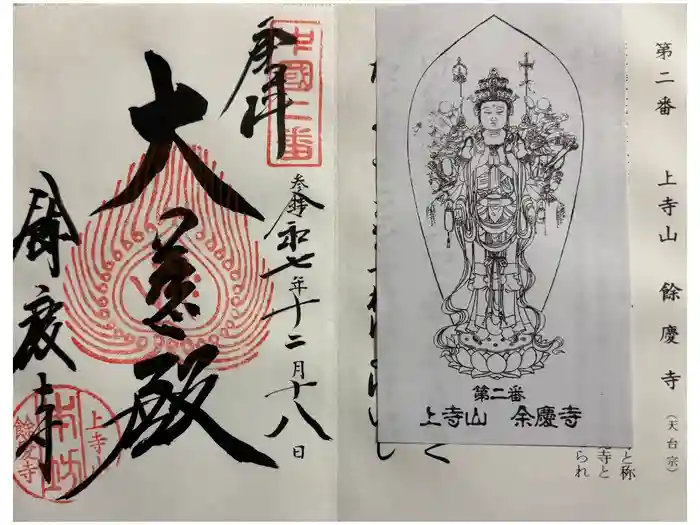 第二番　上寺山　餘慶寺（天台宗）
第二番
上寺山　余慶寺
と称
寺と
られ
く
中國二番
奉拝
参拝
令和七年十二月十八日
大慈殿
餘慶寺
上寺山
餘慶寺